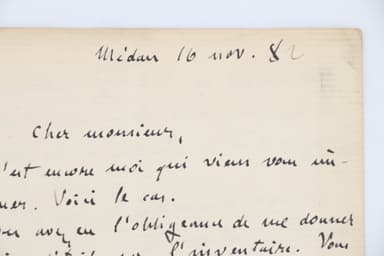 Médan 16 nov. 82
Cher monsieur,
c'est encore moi qui viens vous im-
uner. Voici le cas.
avez eu l'obligeance de me donner
l'inventaire. Vous